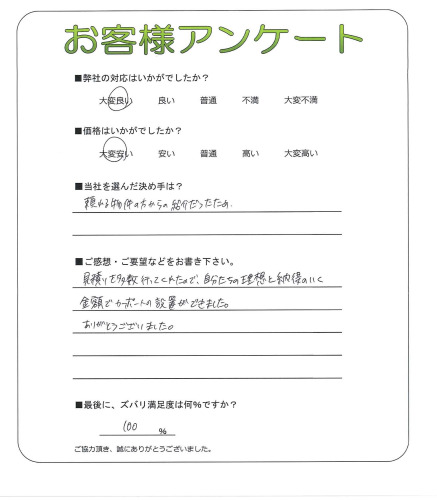 お客様アンケート
■弊社の対応はいかがでしたか？
大変良い 良い 普通 不満 大変不満
■価格はいかがでしたか？
大変安い 安い 普通 高い 大変高い
■当社を選んだ決め手は？
頼れる物件の方からの紹介だったため。
■ご感想・ご要望などをお書き下さい。
見積りを多数行ってくれたので、自分たちの理想と納得のいく
金額でカーポートの設置ができました。
ありがとうございました。
■最後に、ズバリ満足度は何％ですか？
100 ％
ご協力頂き、誠にありがとうございました。